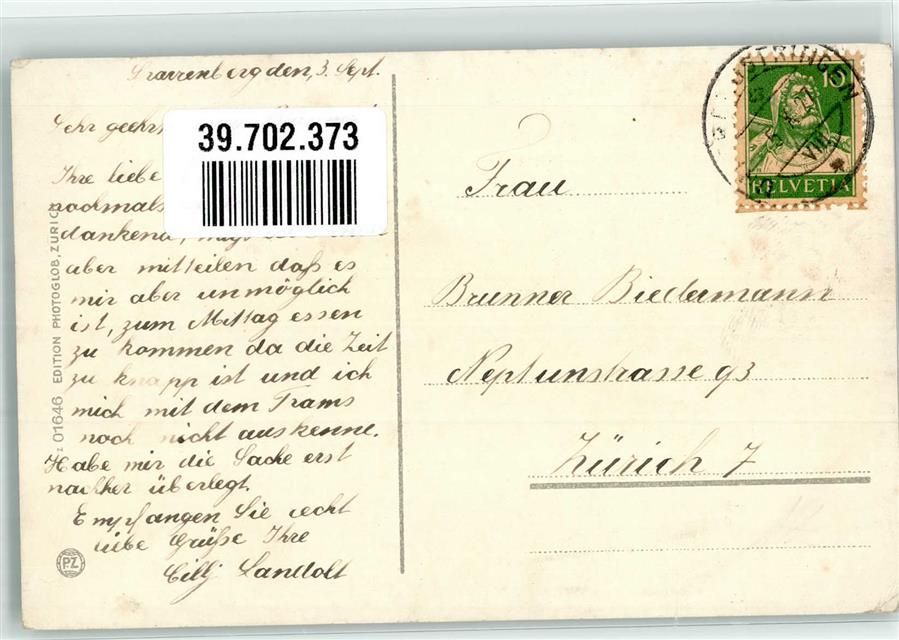 den, 3. Sept.
Sehr geehrt
39.702.373
Ihre liebe
nochmals
dankend,
aber mitteilen daß es
mir aber unmöglich
ist, zum Mittag essen
zu kommen da die Zeit
zu knapp ist und ich
mich mit dem Trams
noch nicht auskenne.
Habe mir die Sache erst
nachher überlegt.
Empfangen Sie recht
liebe Grüße Ihre
Cilly Landolt
01646 EDITION PHOTOGLOB, ZURIC
PZ
10
HELVETIA
VIII
Frau
Brunner Biedermann
Neptunstrasse 93
Zürich 7